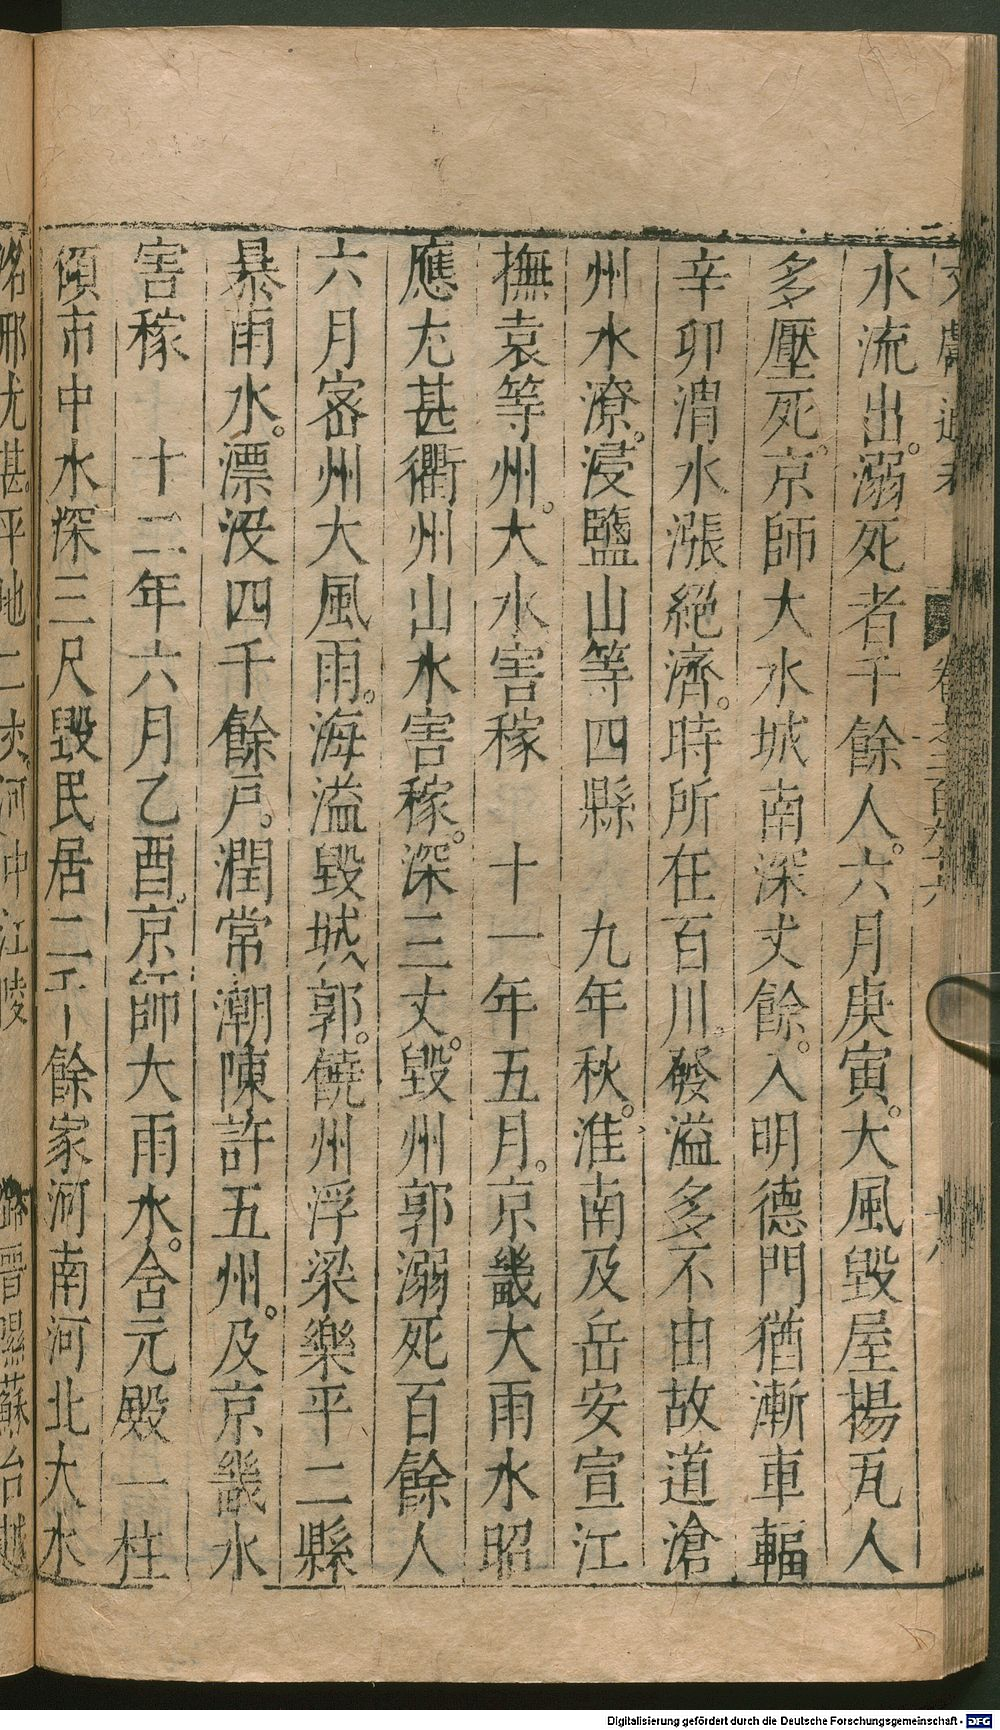 水流出。溺死者千餘人。六月庚寅。大風毀屋揚瓦人
多壓死。京師大水城南深丈餘。入明德門猶漸車輻
辛卯渭水漲絕濟。時所在百川。發溢多不由故道滄
州水潦。浸鹽山等四縣　九年秋。淮南及岳安宣江
撫袁等州。大水害稼　十一年五月。京畿大雨水昭
應尤甚衢州山水害稼。深三丈。毀州郭溺死百餘人
六月密州大風雨。海溢毀城郭。饒州浮梁樂平二縣
暴雨水。漂没四千餘戸。潤常潮陳許五州。及京畿水
害稼　十二年六月乙酉。京師大雨水。含元殿一柱
傾市中水深三尺毀民居二千餘家河南河北大水
洺邢尤甚。平地二丈。河中江陵　晉隰蘇台越
Digitalisierung gefördert durch die Deutsche Forschungsgemeinschaft - DFG